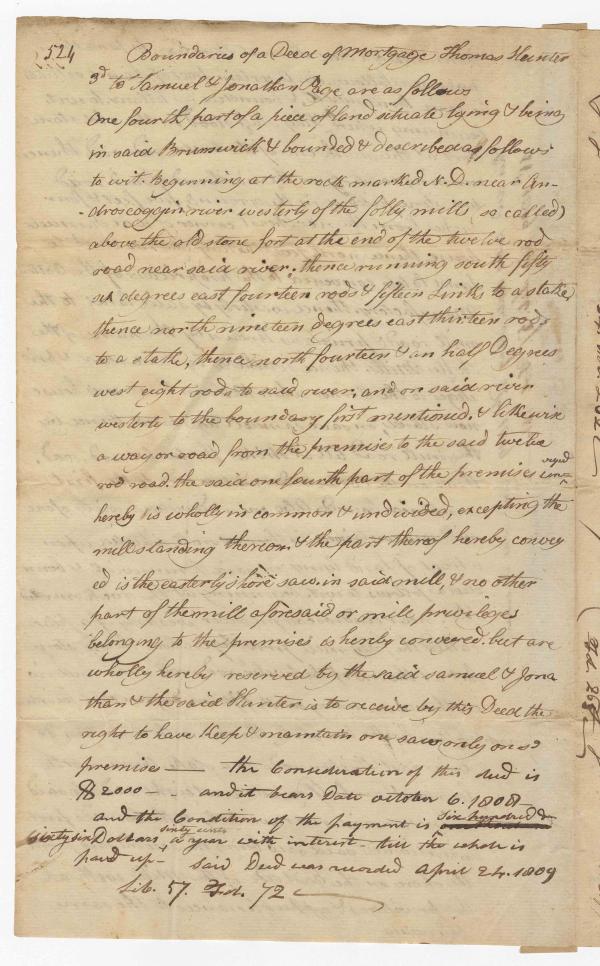 524
Boundaries of a Deed of Mortgage Thomas Hunter
3d to Samuel & Jonathan Page are as follows
One fourth part of a piece of land situate lying & being
in said Brunswick & bounded & described as follows
to wit. Beginning at the rock marked N. D. near An-
-droscoggin river westerly of the folly mill (so called)
above the old stone fort at the end of the twelve rod
road near said river, thence running south fifty
six degrees east fourteen rods & fifteen Links to a stake,
thence north nineteen degrees east thirteen rods
to a stake, thence north fourteen & an half Degrees
west eight rods to said river, and on said river
westerly to the boundary first mentioned. & likewise
a way or road from the premises to the said twelve
rod road. the said one fourth part of the premises conveyed
hereby is wholly in common & undivided, excepting the
mill standing thereon. & the part thereof hereby convey
ed is the easterly shore saw. in said mill, & no other
part of the mill aforesaid or mill privileges
belonging to the premises is hereby conveyed. but are
wholly hereby reserved by the said Samuel & Jona
than & the said Hunter is to receive by this Deed the
right to have Keep & maintain one saw only on sd
premises — the Consideration of this deed is
$2000 - - and it bears Date October 6. 1808
and the Condition of the payment is six hundred &
sixty six Dollars sixty cents a year with interest till the whole is
paid up - said Deed was recorded April 24. 1809
Lib. 57. Fol. 72